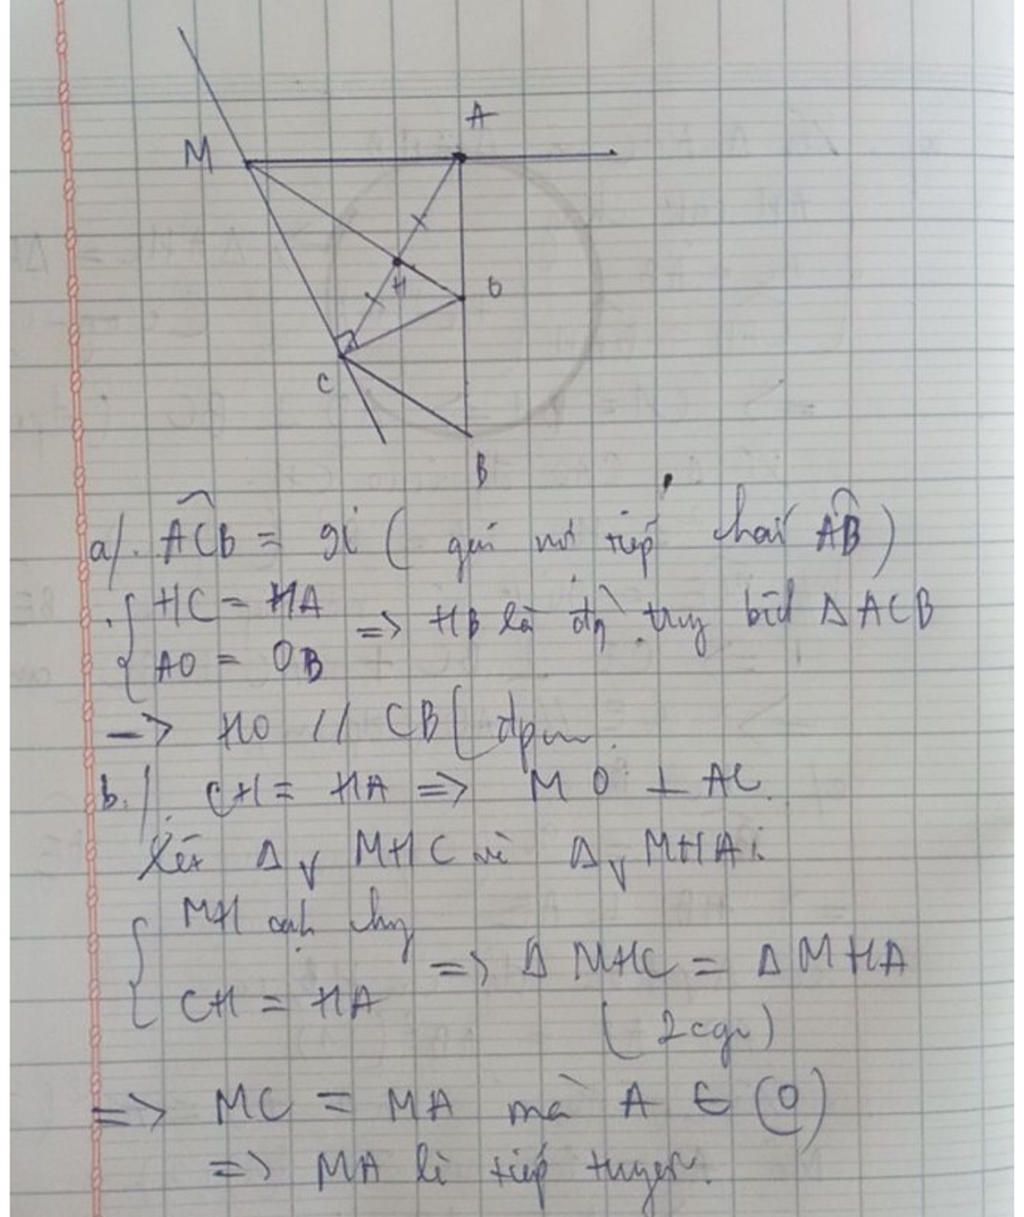 A
M
H
O
C
B
a/. ACB = 9v ( góc nội tiếp chắn AB )
{ HC = HA
AO = OB => HB là đg` trug bìd Δ ACB
-> HO // CB ( đpcm.
b./ CH = HA => MO ⊥ AC.
Xét Δv MHC và Δv MHA:
{ MH cạh chg
CH = HA => Δ MHC = Δ MHA
( 2cgv )
=> MC = MA mà A ∈ (O)
=> MA là tiếp tuyến.